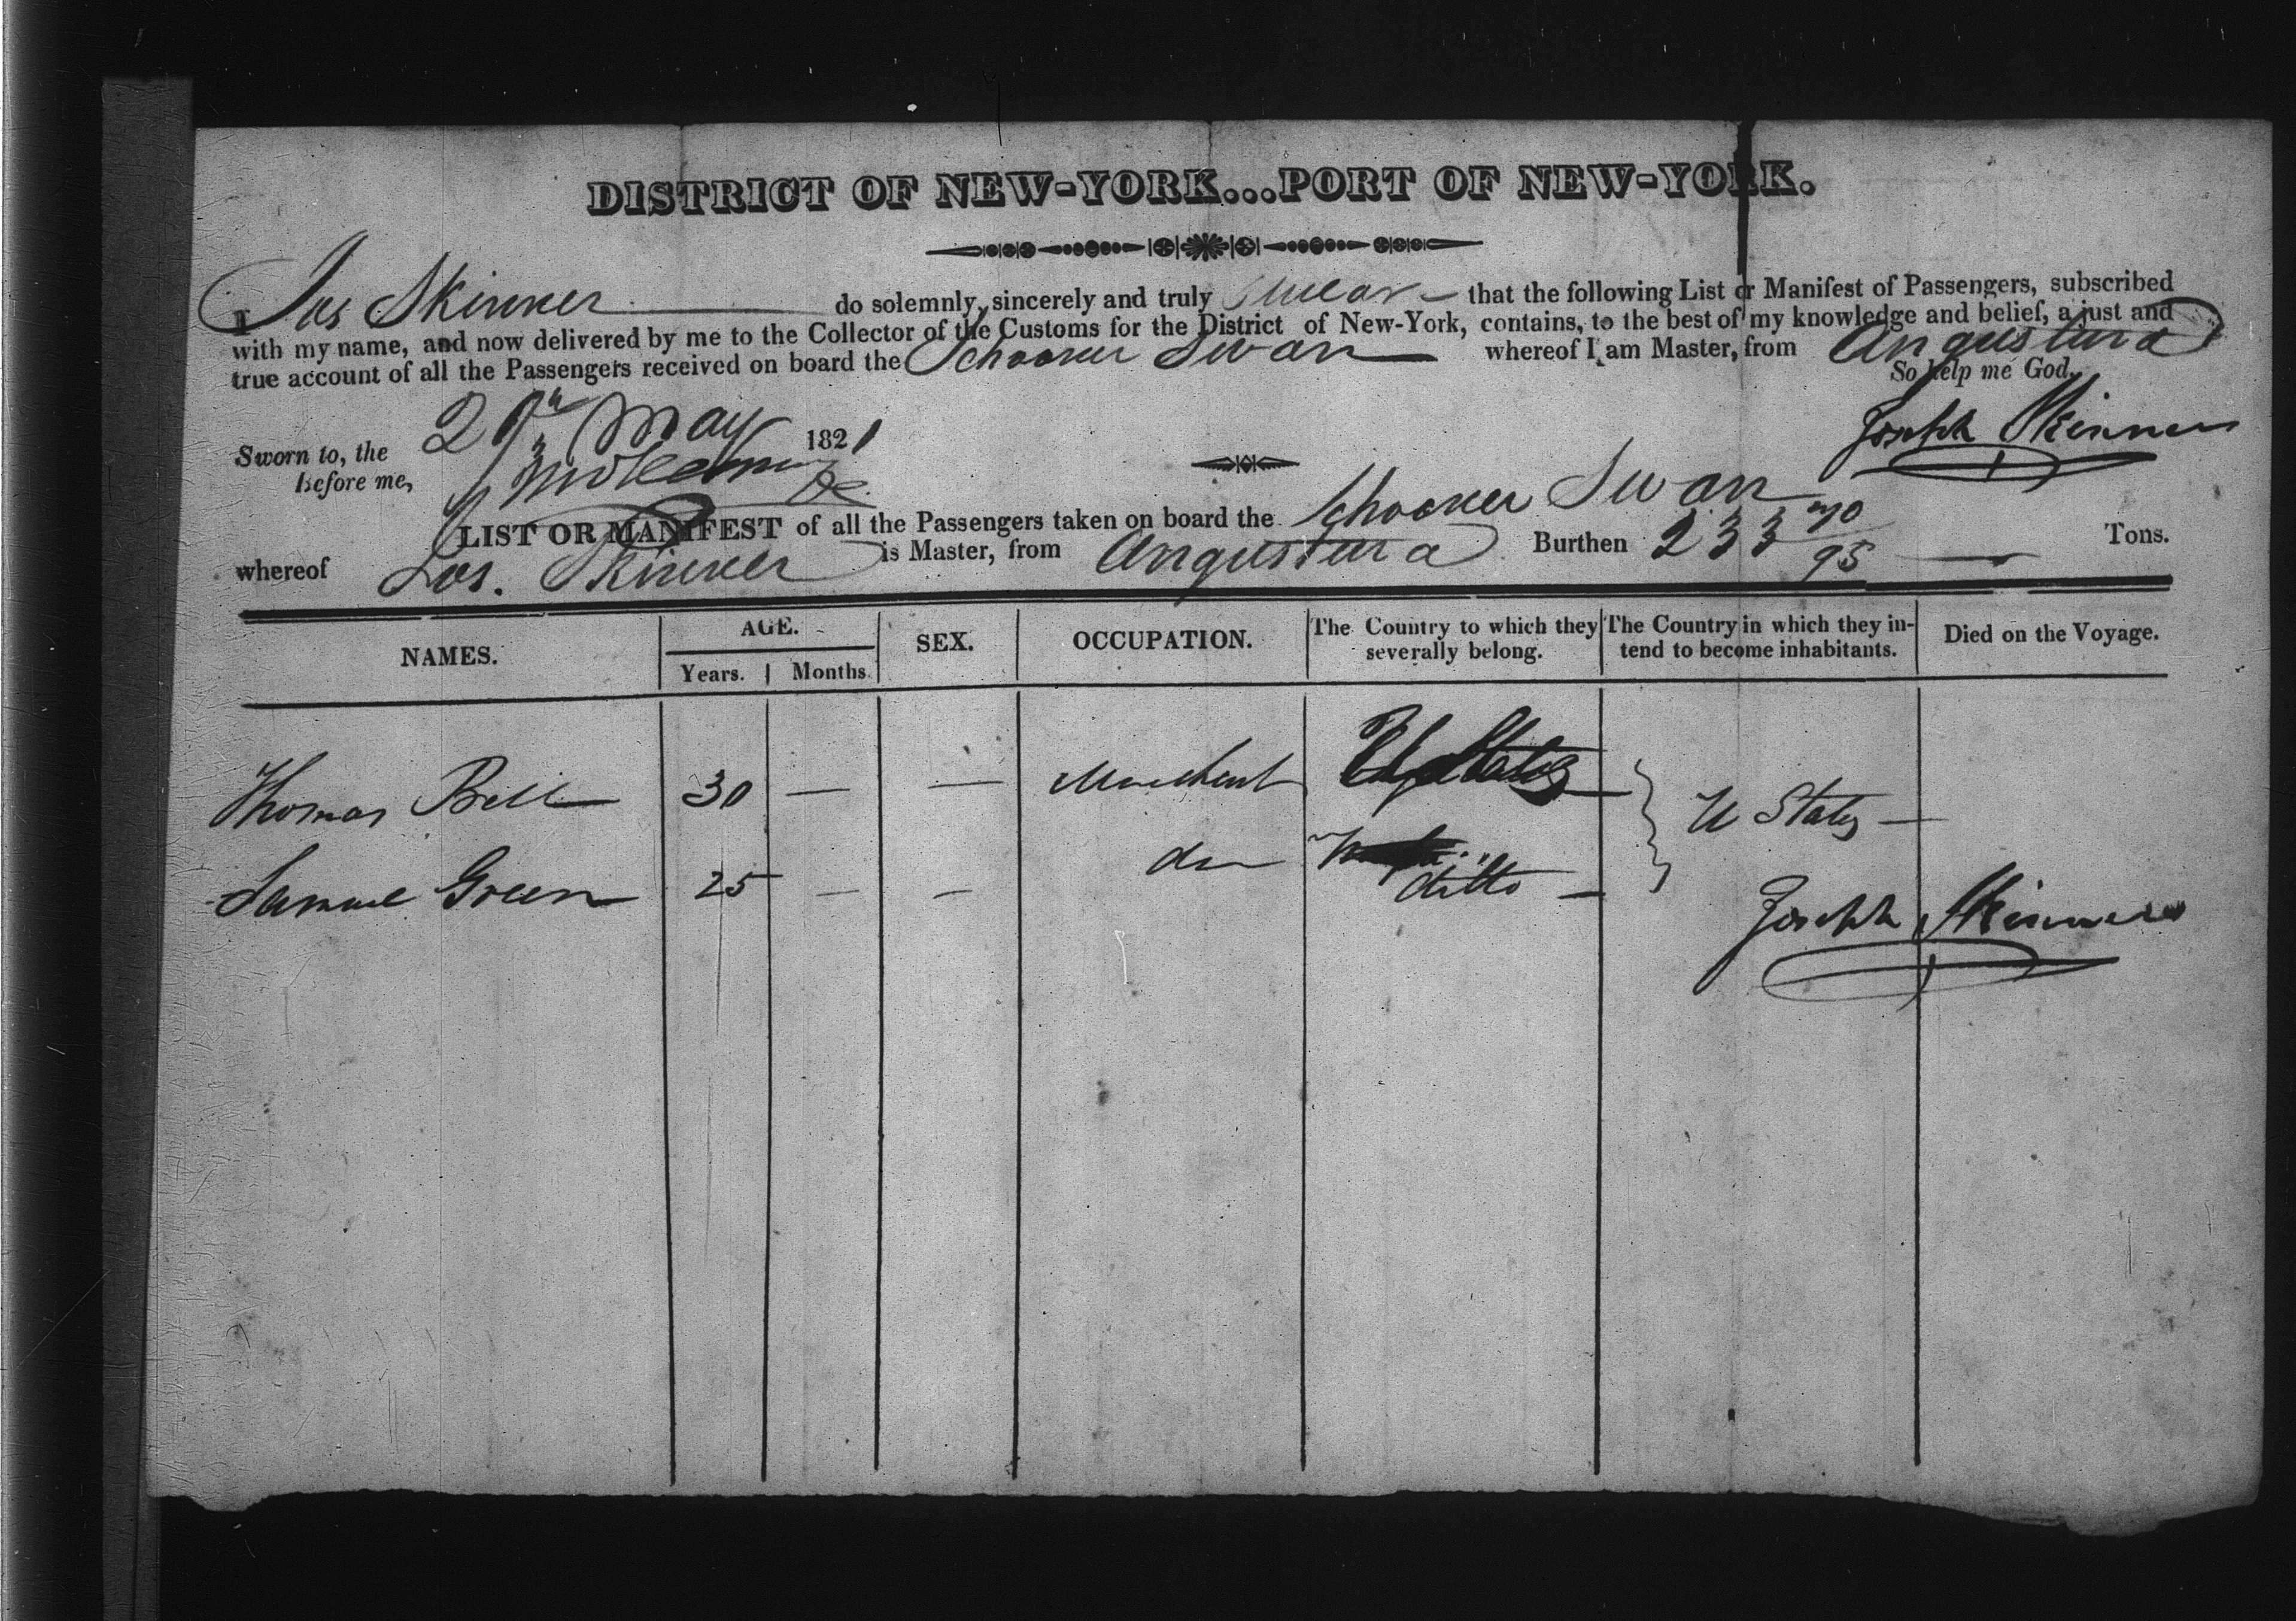 DISTRICT OF NEW-YORK...PORT OF NEW-YORK.
I Jos Skinner do solemnly, sincerely and truly swear that the following List or Manifest of Passengers, subscribed
with my name, and now delivered by me to the Collector of the Customs for the District of New-York, contains, to the best of my knowledge and belief, a just and
true account of all the Passengers received on board the Schooner Swan whereof I am Master, from Angustura
So help me God.
Sworn to, the 29th May 1821 Joseph Skinner
Before me,
LIST OR MANIFEST of all the Passengers taken on board the Schooner Swan
whereof Jos. Skinner is Master, from Angustura Burthen 233 90/95 Tons.
NAMES. AGE. SEX. OCCUPATION. The Country to which they severally belong. The Country in which they intend to become inhabitants. Died on the Voyage.
Years. Months.
Thomas Bell 30 — — Merchant States — U States —
Samuel Green 25 — — do ditto —
Joseph Skinner